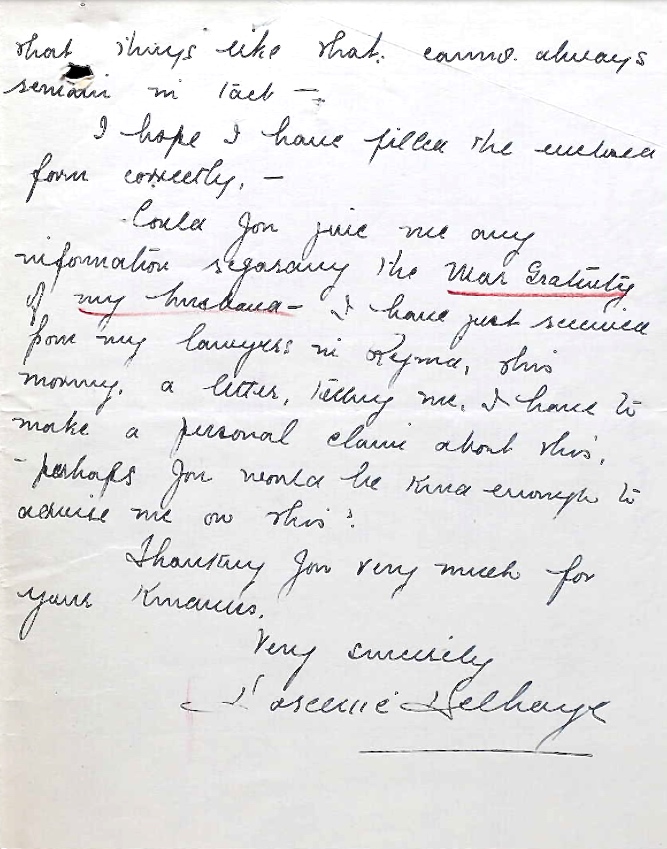 that things like that. cannot always
remain in tact —
I hope I have filled the enclosed
form correctly, —
Could you give me any
information regarding the War Gratuity
of my husband — I have just received
from my lawyers in Regina, this
morning, a letter, telling me, I have to
make a personal claim about this,
- perhaps you would be kind enough to
advise me on this?
Thanking you very much for
your kindness,
Very sincerely
Delhaye